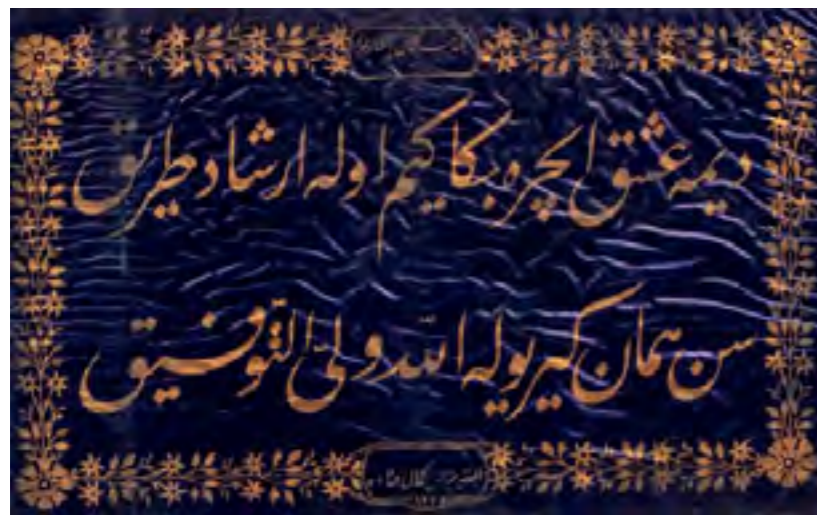 دیمه عشق ایچره بكا كیم اوله ارشاد طریق
سن همان كیر یوله الله ولی التوفیق